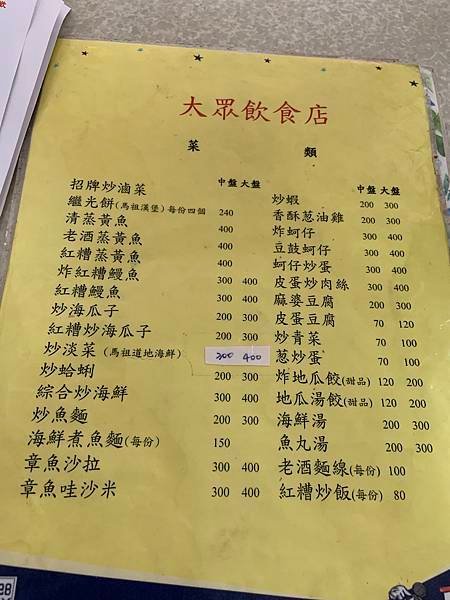 大眾飲食店
菜 類
中盤 大盤
招牌炒滷菜
繼光餅(馬祖漢堡)每份四個 240
清蒸黃魚 400
老酒蒸黃魚 400
紅糟蒸黃魚 400
炸紅糟鰻魚 300 400
紅糟鰻魚 300 400
炒海瓜子 200 300
紅糟炒海瓜子 200 300
炒淡菜(馬祖道地海鮮) 300 400
炒蛤蜊 200 300
綜合炒海鮮 300 400
炒魚麵 200 300
海鮮煮魚麵(每份) 150
章魚沙拉 300 400
章魚哇沙米 300 400
中盤 大盤
炒蝦 200 300
香酥蔥油雞 200 300
炸蚵仔 300 400
豆鼓蚵仔 300 400
蚵仔炒蛋 300 400
皮蛋炒肉絲 300 400
麻婆豆腐 200 300
皮蛋豆腐 70 120
炒青菜 70 100
蔥炒蛋 70 100
炸地瓜餃(甜品) 120 200
地瓜湯餃(甜品) 120 200
海鮮湯 200 300
魚丸湯 200 300
老酒麵線(每份) 100
紅糟炒飯(每份) 80